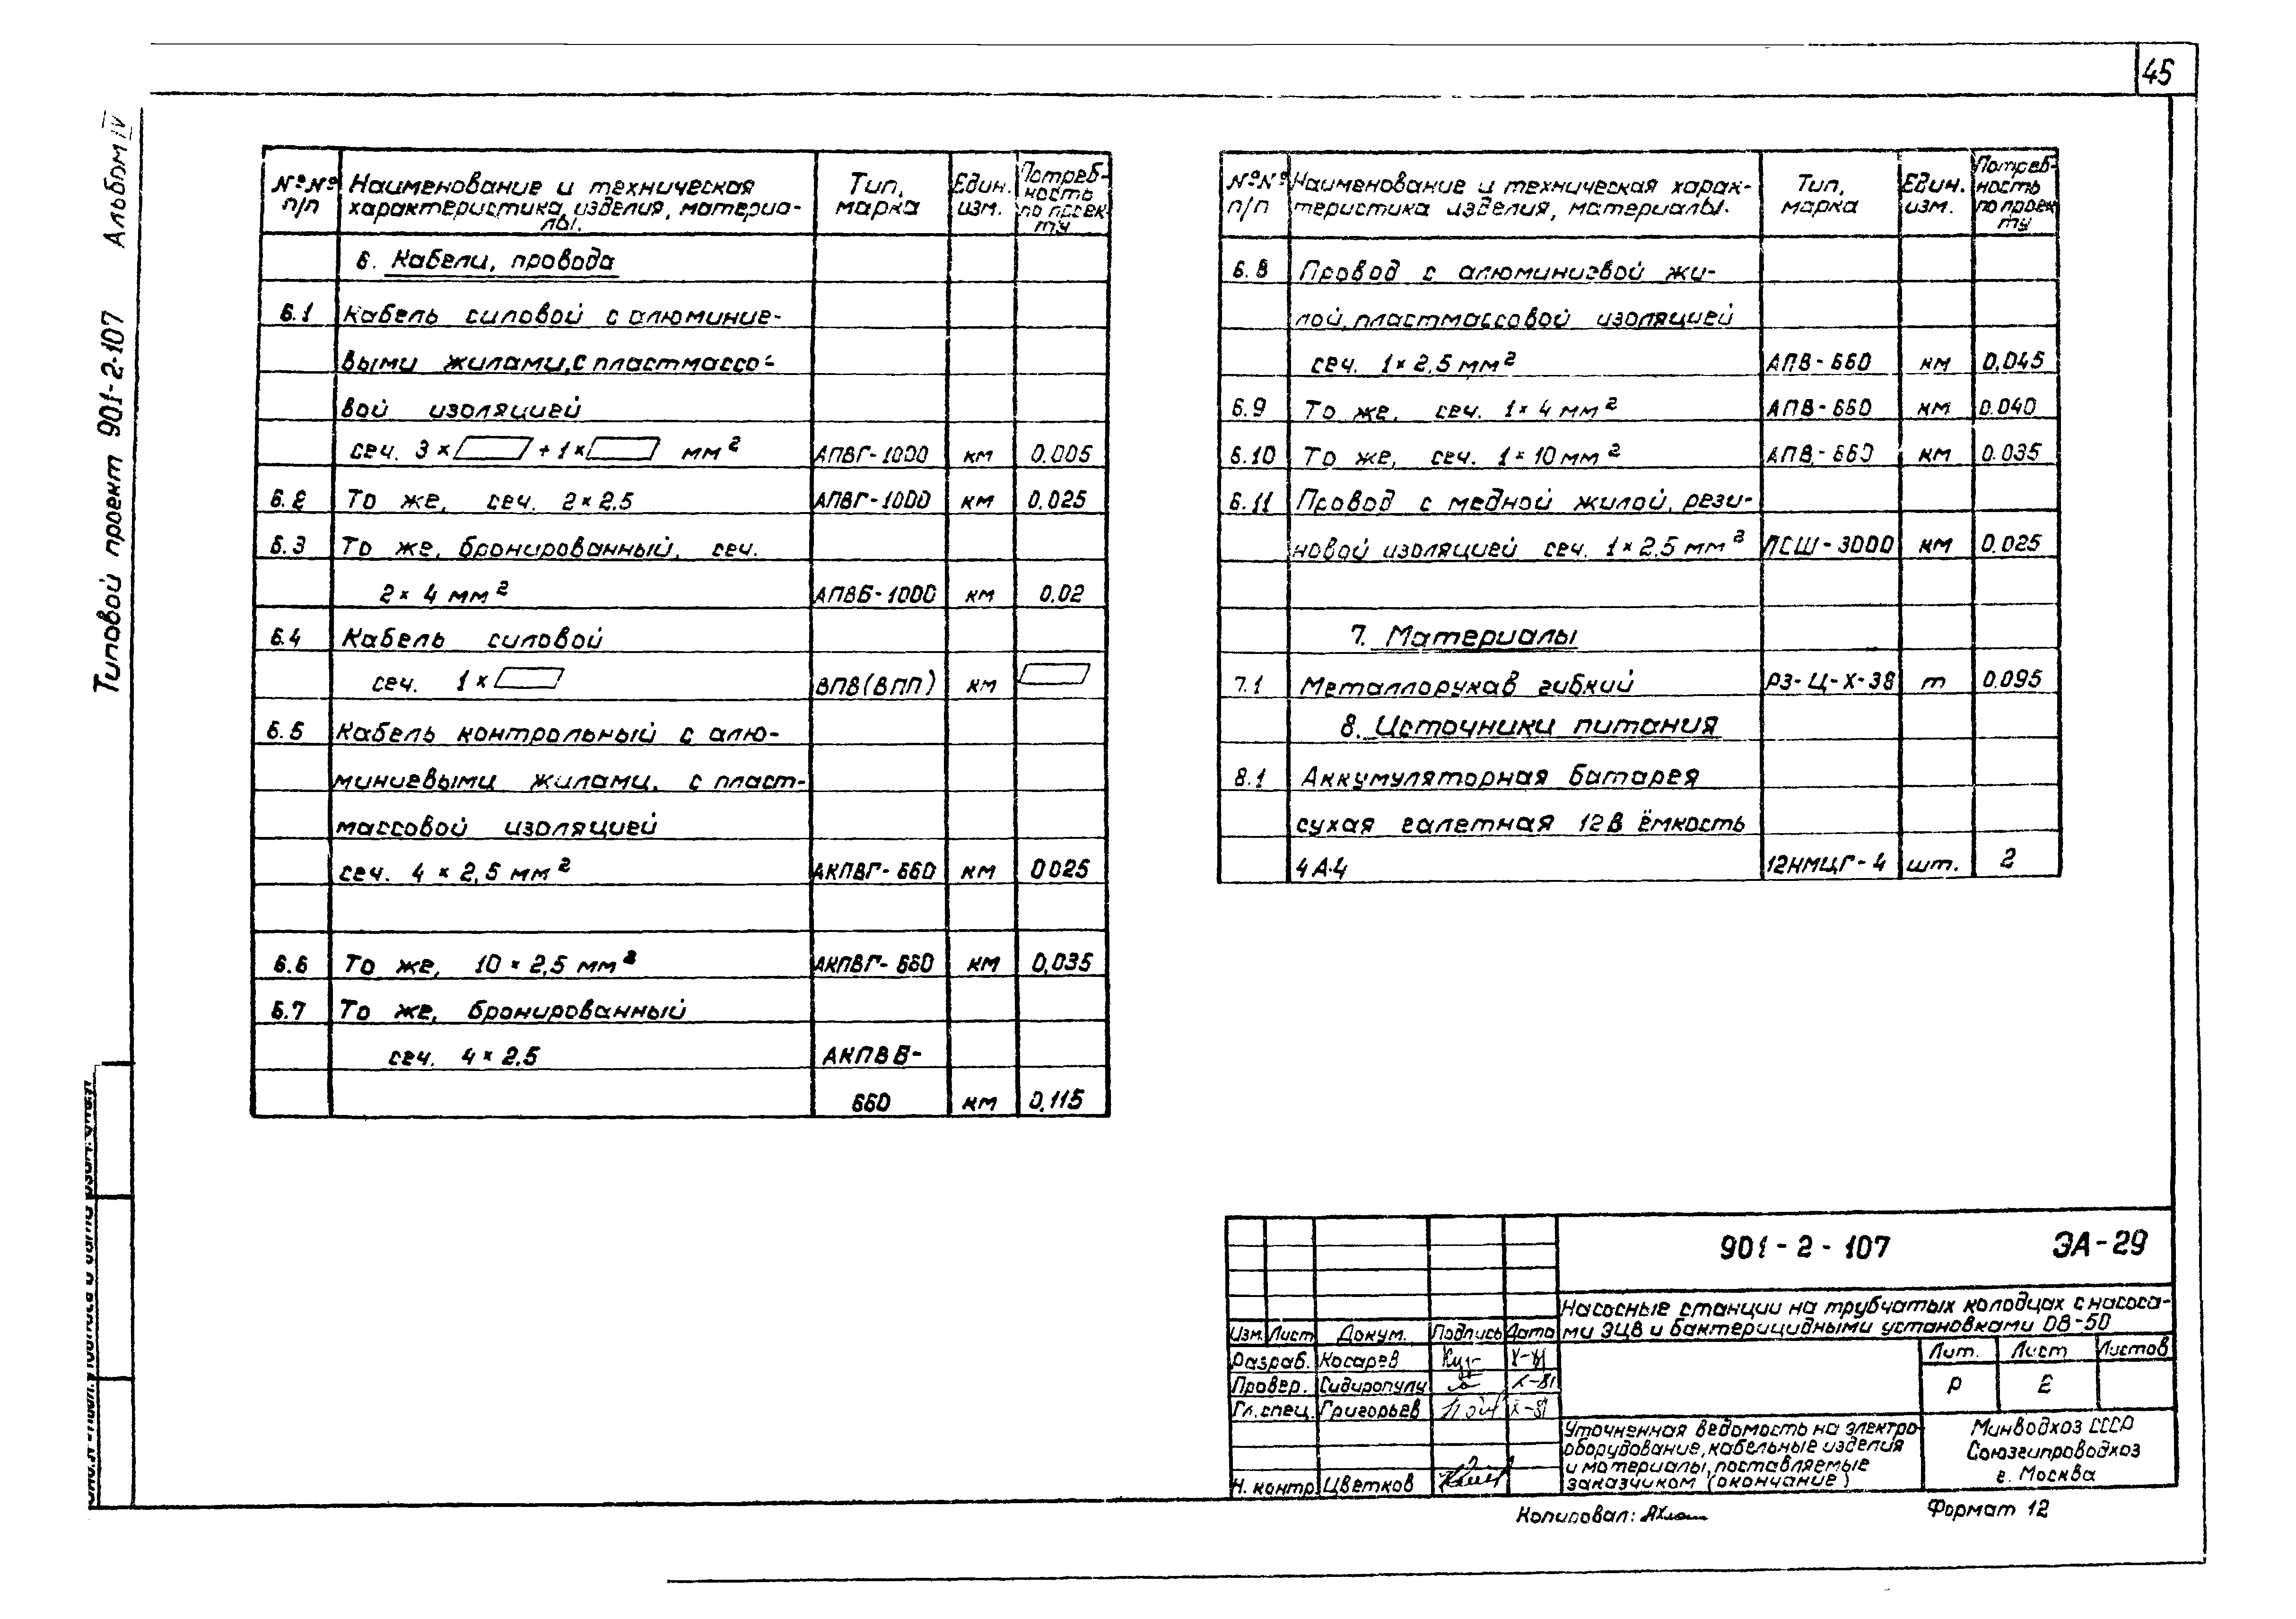 45
Альбом IV
Типовой проект 901-2-107
№№ п/п
Наименование и техническая характеристика изделия, материалы.
Тип, марка
Един. изм.
Потребность по проекту
6. Кабели, провода
6.1 Кабель силовой с алюминие-
выми жилами, с пластмассо-
вой изоляцией
сеч. 3× + 1× мм² АПВГ-1000 км 0.005
6.2 То же, сеч. 2×2.5 АПВГ-1000 км 0.025
6.3 То же, бронированный, сеч.
2×4 мм² АПВБ-1000 км 0.02
6.4 Кабель силовой
сеч. 1× ВПВ(ВПП) км
6.5 Кабель контрольный с алю-
миниевыми жилами, с пласт-
массовой изоляцией
сеч. 4×2,5 мм² АКПВГ-660 км 0025
6.6 То же, 10×2,5 мм² АКПВГ-660 км 0,035
6.7 То же, бронированный
сеч. 4×2,5 АКПВБ-
660 км 0,115
№№ п/п
Наименование и техническая характеристика изделия, материалы.
Тип, марка
Един. изм.
Потребность по проекту
6.8 Провод с алюминиевой жи-
лой, пластмассовой изоляцией
сеч. 1×2,5 мм² АПВ-660 км 0,045
6.9 То же, сеч. 1×4 мм² АПВ-660 км 0.040
6.10 То же, сеч. 1×10 мм² АПВ-660 км 0.035
6.11 Провод с медной жилой, рези-
новой изоляцией сеч. 1×2,5 мм² ПСШ-3000 км 0.025
7. Материалы
7.1 Металлорукав гибкий РЗ-Ц-Х-38 т 0.095
8. Источники питания
8.1 Аккумуляторная батарея
сухая галетная 12В ёмкость
4А.ч 12НМЦГ-4 шт. 2
901-2-107 ЭА-29
Насосные станции на трубчатых колодцах с насоса-
ми ЭЦВ и бактерицидными установками ОВ-50
Изм. Лист Докум. Подпись Дата
Разраб. Косарев X-81
Провер. Сидиропулу X-81
Гл. спец. Григорьев X-81
Н. контр. Цветков
Лит. Лист Листов
Р 2
Уточненная ведомость на электро-
оборудование, кабельные изделия
и материалы, поставляемые
заказчиком (окончание)
Минводхоз СССР
Союзгипроводхоз
г. Москва
Копировал:
Формат 12